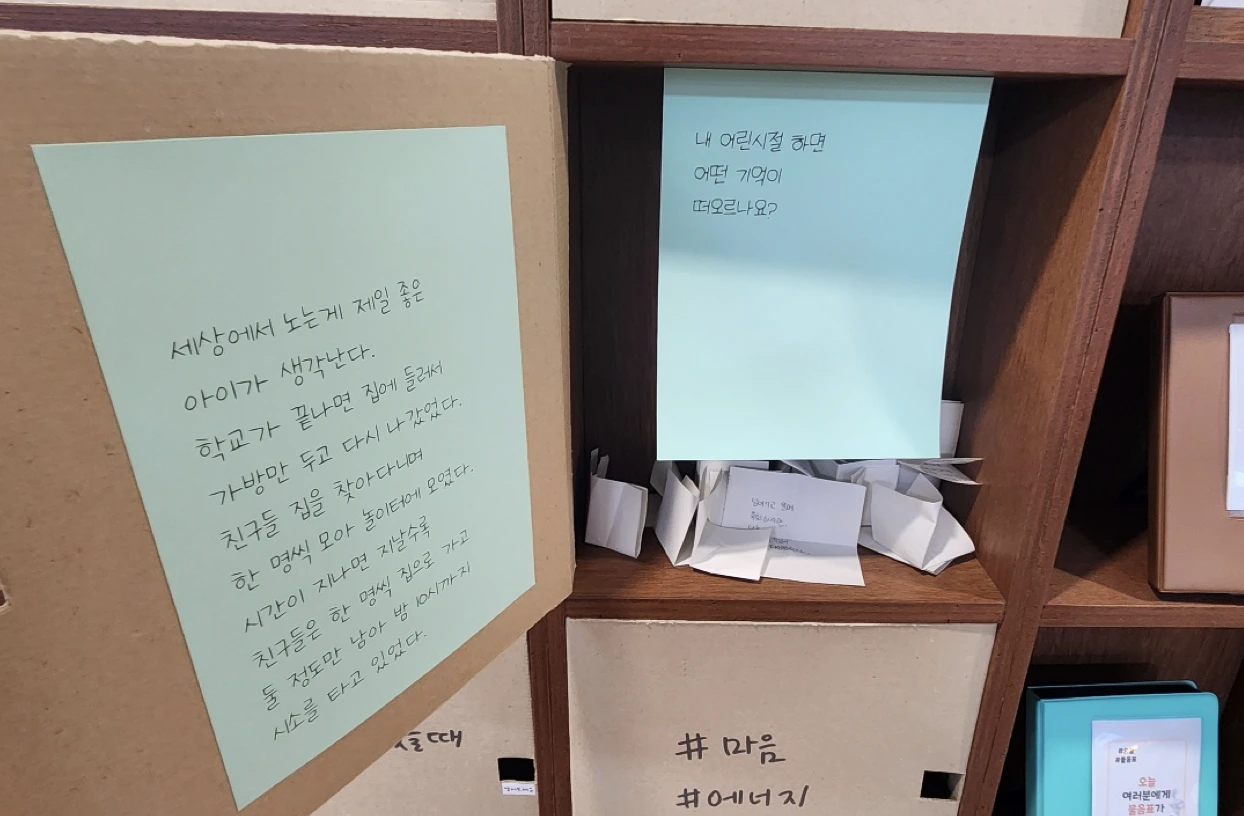 세상에서 노는게 제일 좋은
아이가 생각난다.
학교가 끝나면 집에 들러서
가방만 두고 다시 나갔었다.
친구들 집을 찾아다니며
한 명씩 모아 놀이터에 모였다.
시간이 지나면 지날수록
친구들은 한 명씩 집으로 가고
둘 정도만 남아 밤 10시까지
시소를 타고 있었다.
내 어린시절 하면
어떤 기억이
떠오르나요?
# 마음
#에너지
#물음표
오늘
여러분에게
물음표가